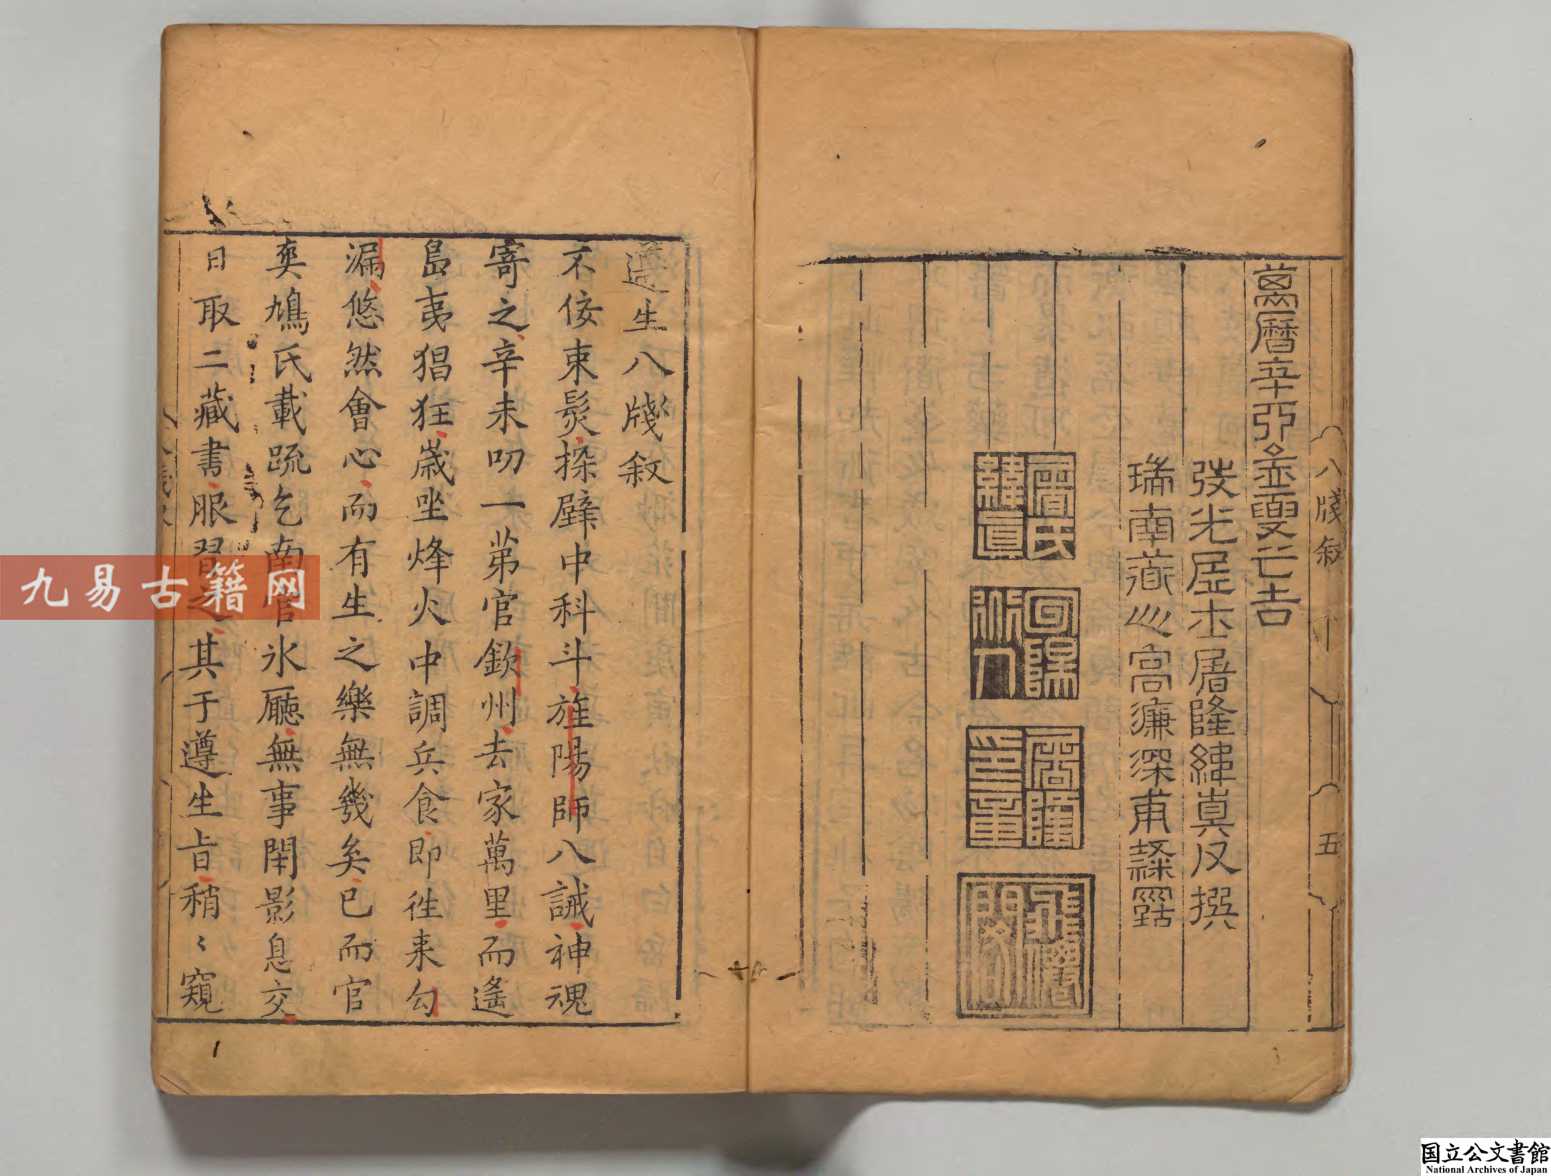 萬曆辛卯益夏之吉
弢光居士屠隆緯真父撰
瑞南
屠氏
緯真
屠隆
印章
八牋敘
五
遵生八牋敘
不佞束髮探壁中科斗旌陽師八誡神魂
寄之辛未叨一第官欽州去家萬里而遙
島夷猖狂歲坐烽火中調兵食即徃来勾
漏悠然會心而有生之樂無幾矣已而官
爽鳩氏載疏乞南官水廳無事閈影息交
日取二藏書服習之其于遵生旨稍〻窺
九易古籍网
国立公文書館
National Archives of Japan